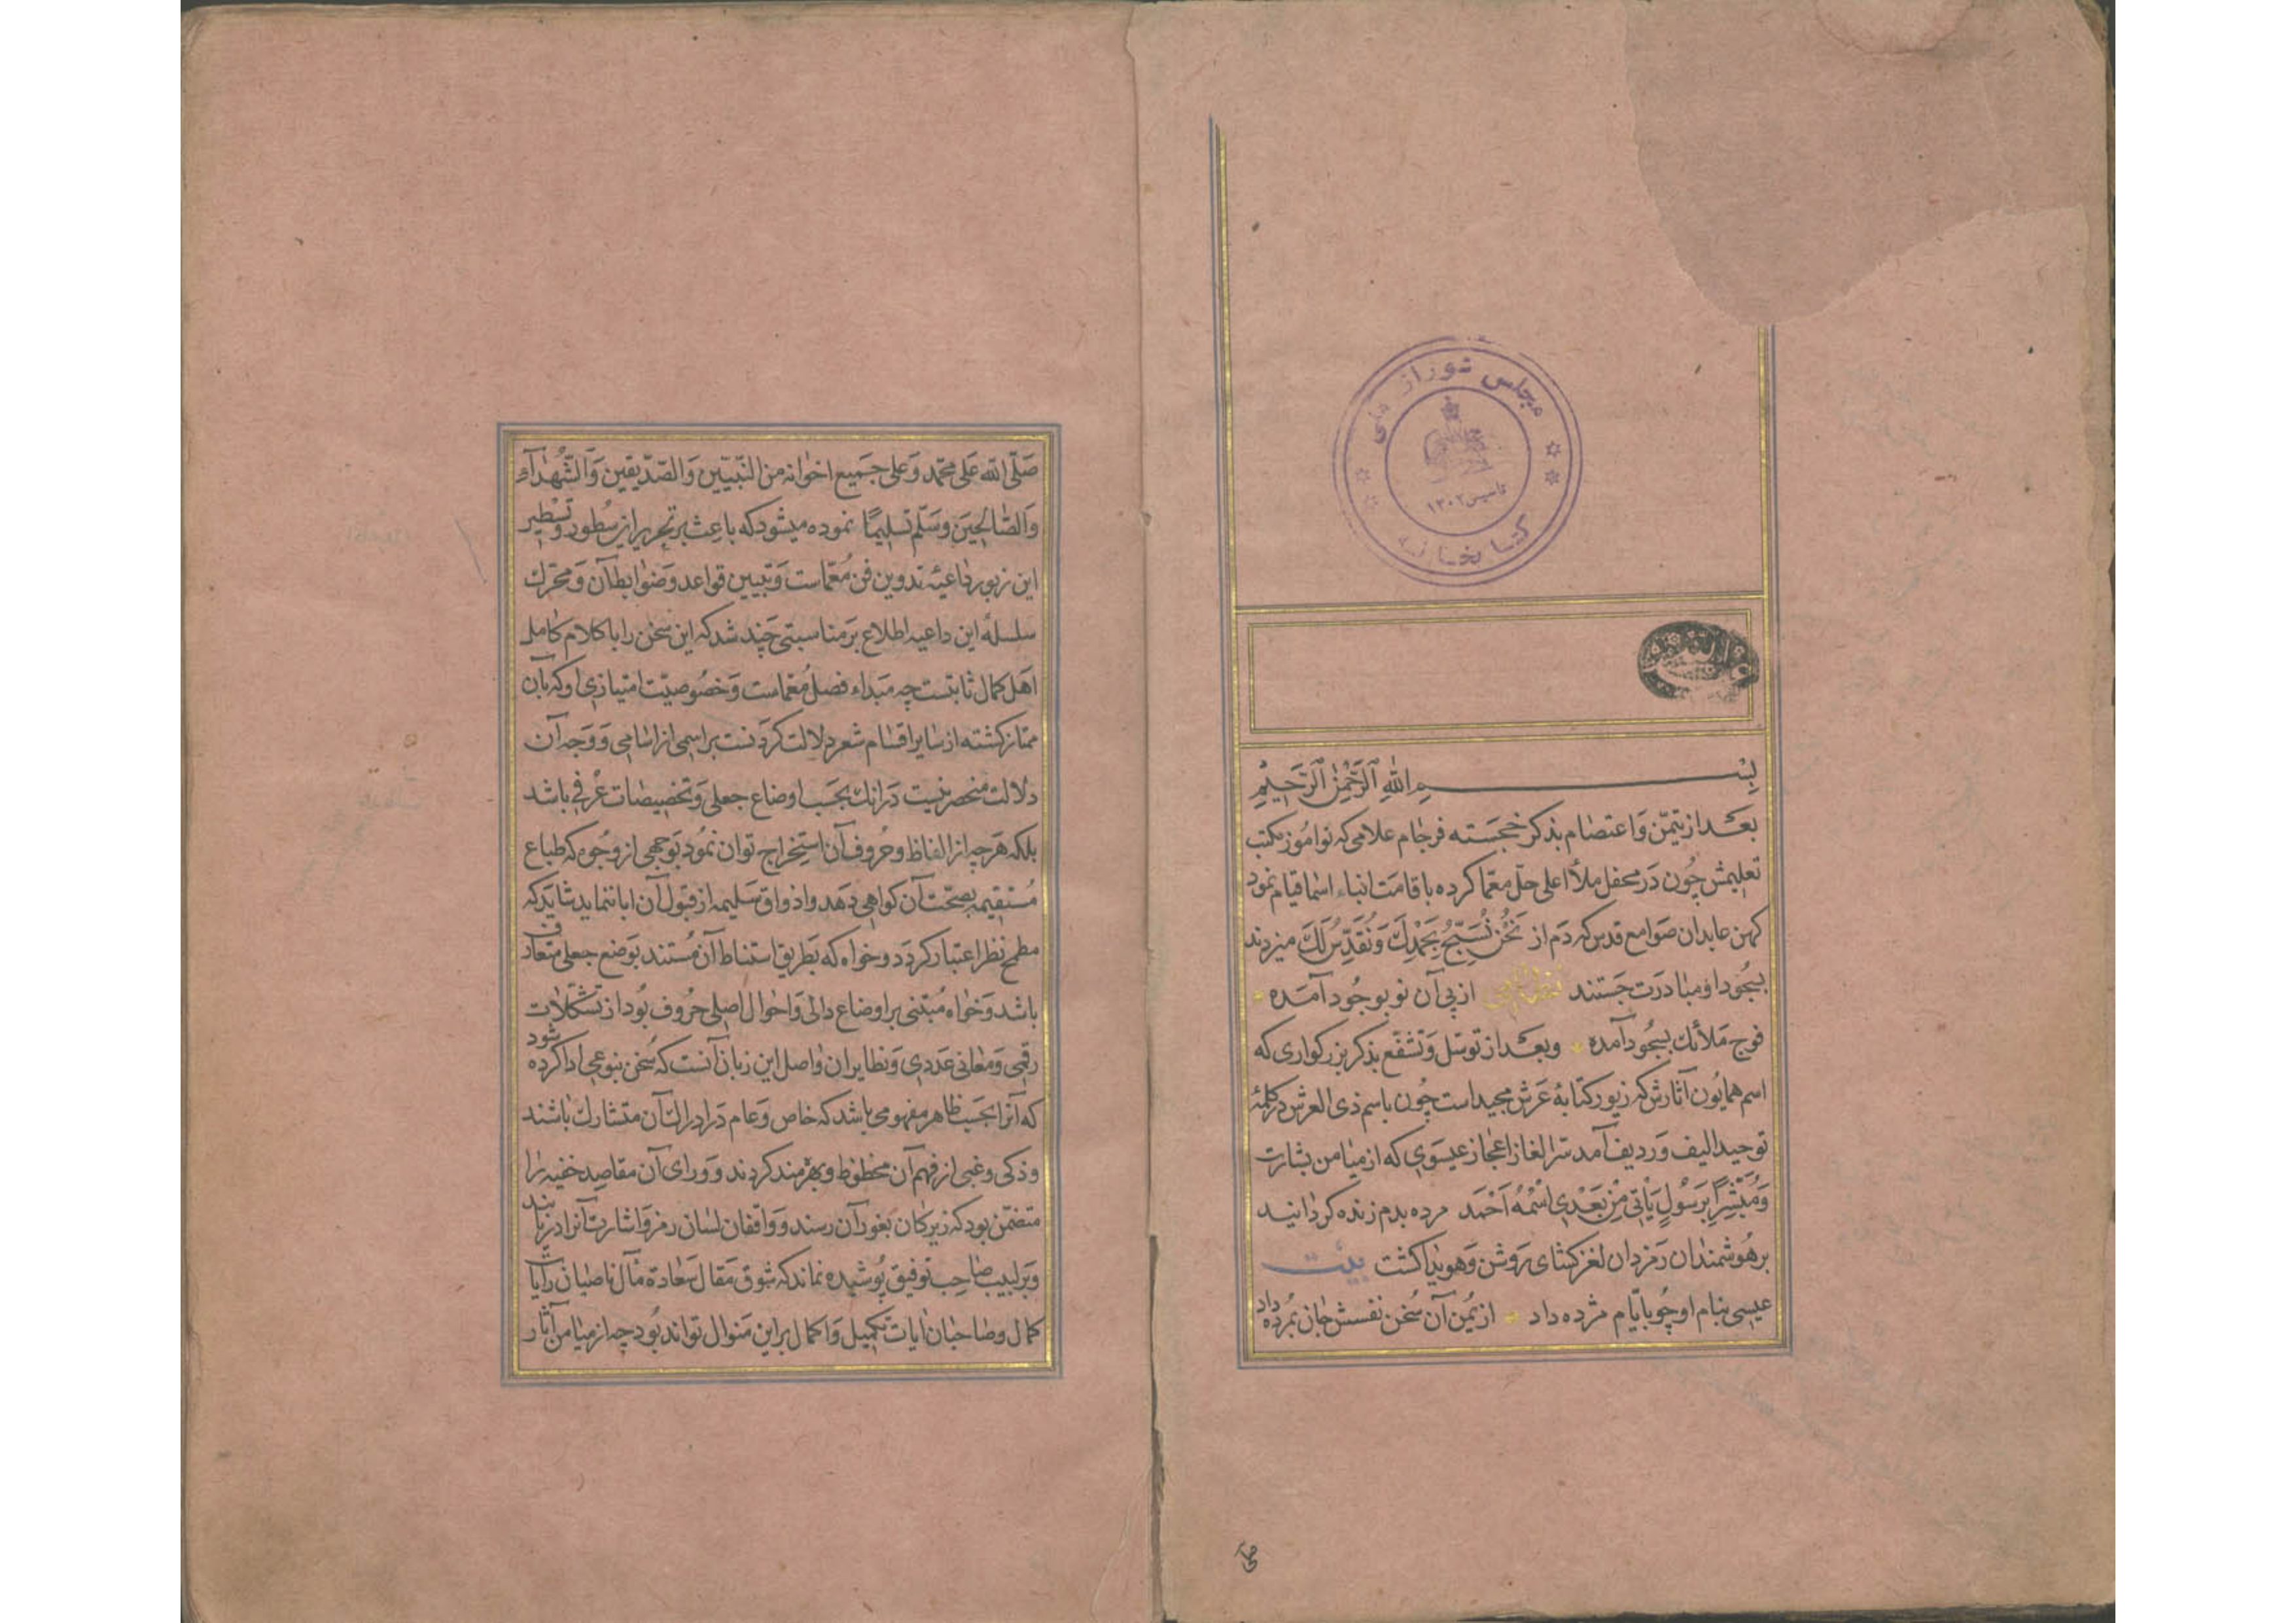 مجلس شورای ملی
تاسیس ۱۳۰۲
کتابخانه
بسم الله الرحمن الرحیم
بعد از تیمّن و اعتصام بذکر خجسته فرجام علامی که نوآموز مکتب
تعلیمش چون در محفل ملأ اعلی حلّ معمّا کرده باقامت انباء اسما قیام نمود
کهن عابدان صوامع قدس که دم از نَحْنُ نُسَبِّحُ بِحَمْدِكَ وَنُقَدِّسُ لَكَ میزدند
بسجود او مبادرت جستند از پی آن نو بوجود آمده
فوج ملائک بسجود آمده وبعد از توسّل و تشفّع بذکر بزرکواری که
اسم همایون آثارش که زیور کتابهٔ عرش مجید است چون باسم ذی العرش در کلمهٔ
توحید الیف و ردیف آمد سرّ الغاز اعجاز عیسوی که از میامن بشارت
وَمُبَشِّرًا بِرَسُولٍ يَأْتِي مِنْ بَعْدِي اسْمُهُ أَحْمَد مرده بدم زنده کردانید
بر هوشمندان رمزدان لغز کشای روشن و هویدا کشت بیت
عیسی بنام او چو بایّام مژده داد از یمن آن سخن نفسش جان بمرده داد
صلی
صلّی الله علی محمّد وعلی جمیع اخوانه من النّبیّین والصّدّیقین والشّهدآء
والصّالحین وسلّم تسلیمًا نموده میشود که باعث بر تحریر این سطور و تسطیر
این زبور داعیهٔ تدوین فن معمّاست و تبیین قواعد و ضوابط آن و محرّک
سلسلهٔ این داعیه اطلاع بر مناسبتی چند شد که این سخن را با کلام کامل
اهل کمال ثابتست چه مبداء فصل معمّاست و خصوصیّت امتیازی او که بآن
ممتاز کشته از سایر اقسام شعر دلالت کردنست بر اسمی از اسامی و وجه آن
دلالت منحصر نیست در آنک بحسب اوضاع جعلی و تخصیصات عرفی باشد
بلکه هر چه از الفاظ و حروف آن استخراج توان نمود بوجهی از وجوه که طباع
مستقیمه بصحّت آن کواهی دهد و اذواق سلیمه از قبول آن ابا ننماید شاید که
مطمح نظر اعتبار کردد و خواه که بطریق استنباط آن مستند بوضع جعلی متعارف
باشد و خواه مبتنی بر اوضاع دالی و احوال اصلی حروف بود از تشکّلات
رقمی و معانی عددی و نظایر آن و اصل این زبان آنست که سخن بنوعی ادا کرده شود
که آنرا بحسب ظاهر مفهومی باشد که خاص و عام در ادراک آن متشارک باشند
و ذکی و غبی از فهم آن محظوظ و بهره‌مند کردند و ورای آن مقاصد خفیه را
متضمّن بود که زیرکان بغور آن رسند و واقفان لسان رمز و اشارت آنرا دریابند
و بر لبیب صاحب توفیق پوشیده نماند که شوق مقال سعادة مآل ناصبان رایات
کمال و صاحبان ایات تکمیل و اکمال بر این منوال تواند بود چه از میامن آثار